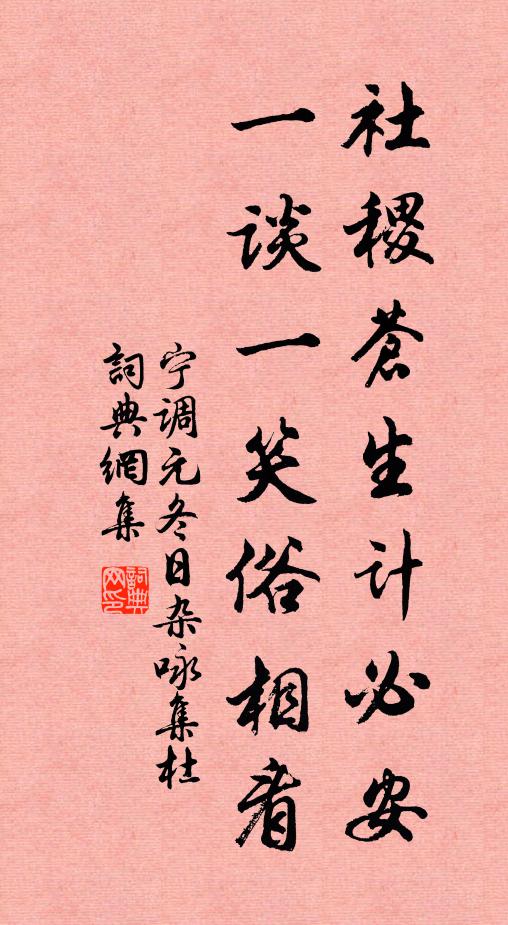 社稷蒼生计必安
一谈一笑俗相看
宁调元冬日杂咏集杜
詞典網集
詞典网印